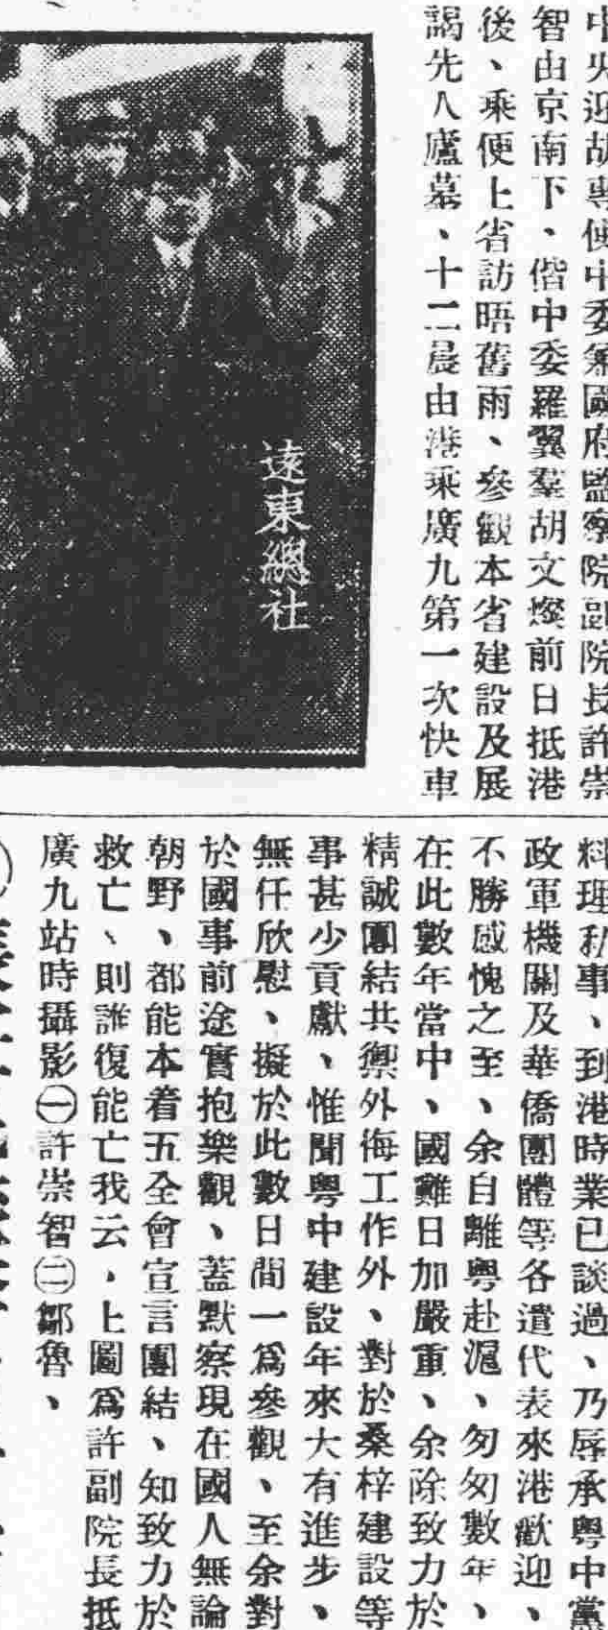 中央迎胡專使中委兼國府監察院副院長許崇
智由京南下、偕中委羅翼羣胡文燦前日抵港
後、乘便上省訪晤舊雨、參觀本省建設及展
謁先人廬墓、十二晨由港乘廣九第一次快車
遠東總社
料理私事、到港時業已談過、乃辱承粤中黨
政軍機關及華僑團體等各遣代表來港歡迎、
不勝感愧之至、余自離粤赴滬、匆匆數年、
在此數年當中、國難日加嚴重、余除致力於
精誠團結共禦外侮工作外、對於桑梓建設等
事甚少貢獻、惟聞粤中建設年來大有進步、
無任欣慰、擬於此數日間一爲參觀、至余對
於國事前途實抱樂觀、蓋默察現在國人無論
朝野、都能本着五全會宣言團結、知致力於
救亡、則誰復能亡我云，上圖爲許副院長抵
廣九站時攝影㊀許崇智㊁鄒魯、